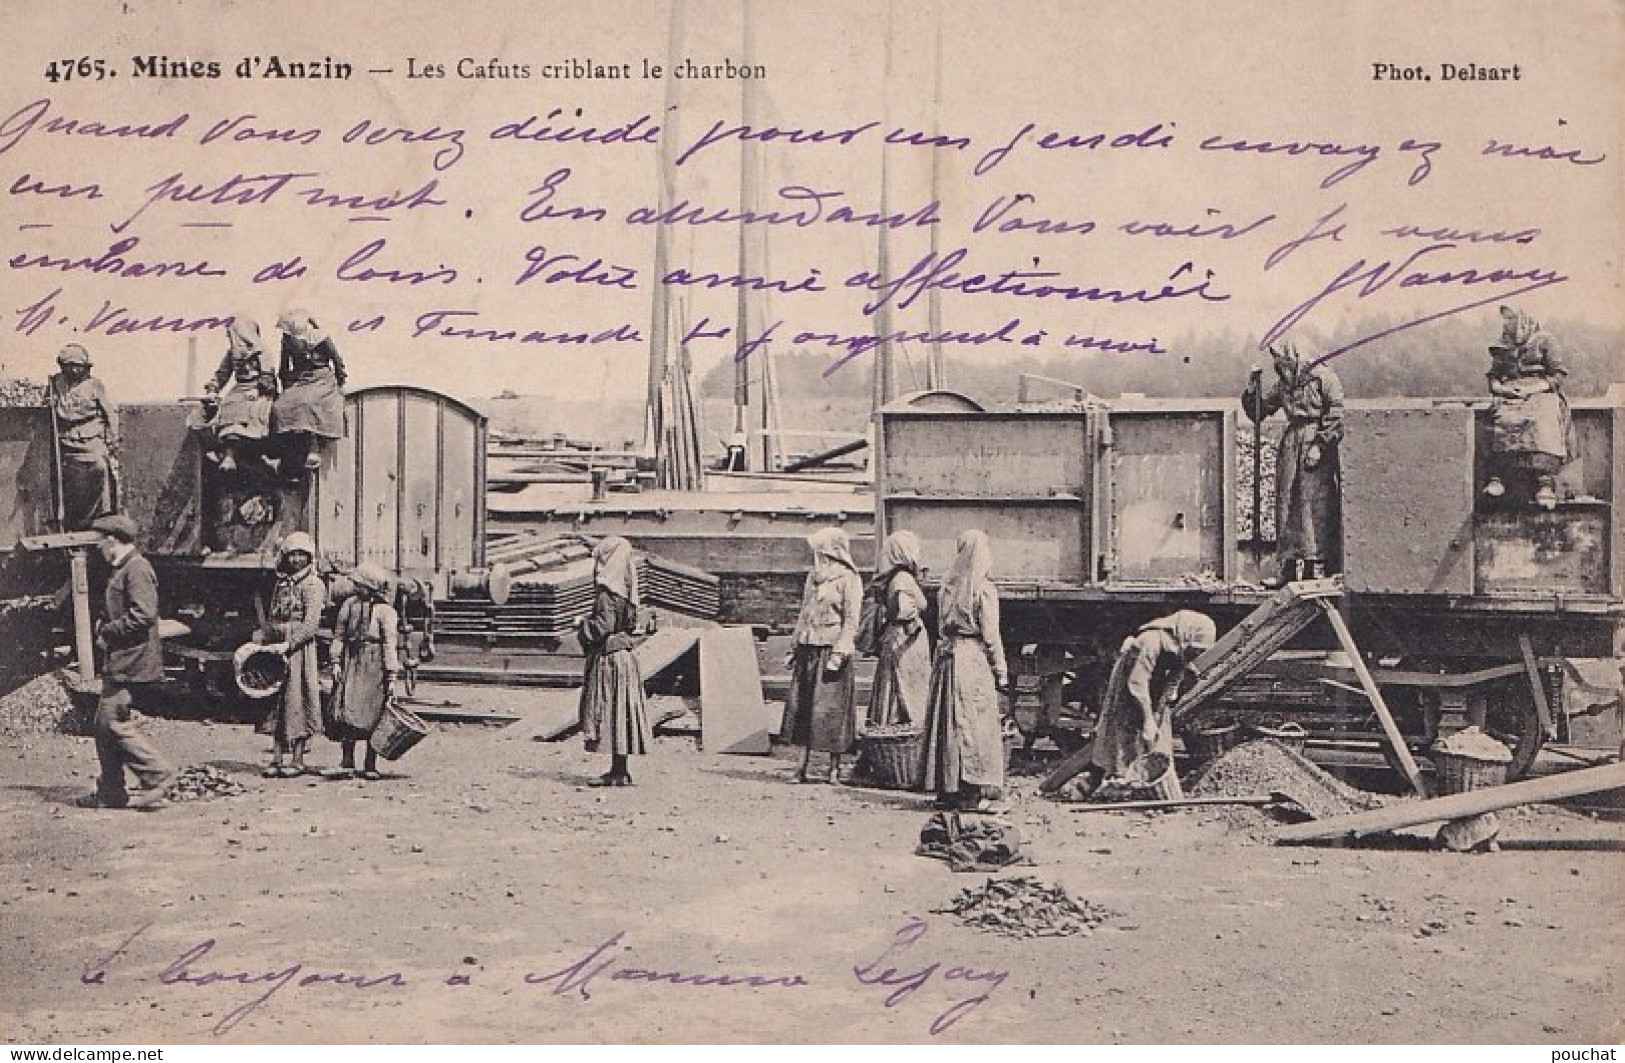 4765. Mines d'Anzin — Les Cafuts criblant le charbon
Phot. Delsart
Quand Vous serez décidé pour un jeudi envoyez moi
un petit mot. En attendant Vous voir je vous
embrasse de loin. Votre amie affectionnée
et Fernande se joignent à moi.
Le bonjour à Lejay.
pouchat
www.delcampe.net